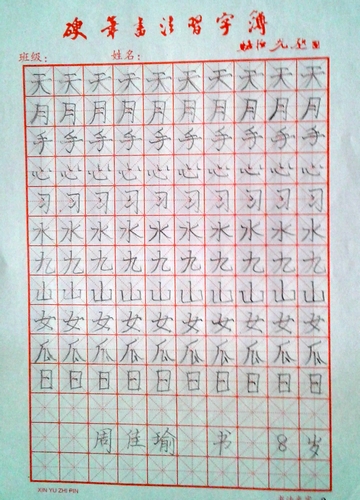 硬筆書法習字簿
班级： 姓名：
天天天天天天天天天天
月月月月月月月月月月
手手手手手手手手手手
心心心心心心心心心心
习习习习习习习习习习
水水水水水水水水水水
九九九九九九九九九九
山山山山山山山山山山
女女女女女女女女女女
瓜瓜瓜瓜瓜瓜瓜瓜瓜瓜
日日日日日日日日日日
周佳瑜 书 8岁
XIN YU ZHI PIN